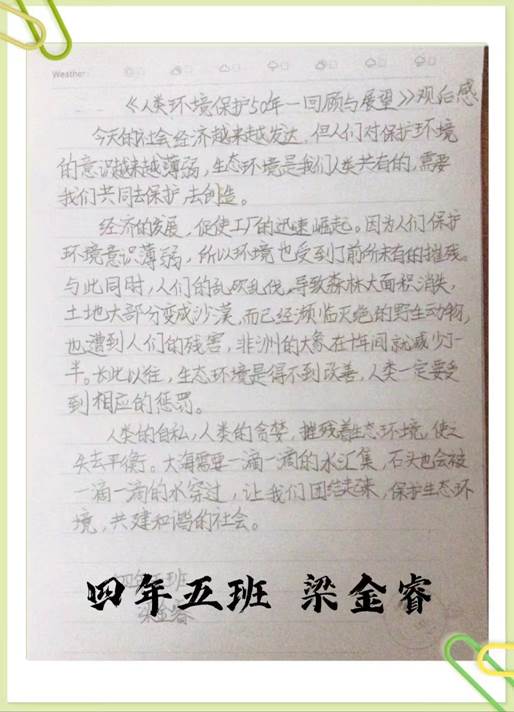 Weather
《人类环境保护50年—回顾与展望》观后感
今天的社会经济越来越发达，但人们对保护环境
的意识越来越薄弱，生态环境是我们人类共有的，需要
我们共同去保护，去创造。
经济的发展，促使工厂的迅速崛起。因为人们保护
环境意识薄弱，所以环境也受到了前所未有的摧残。
与此同时，人们的乱砍乱伐，导致森林大面积消失，
土地大部分变成沙漠，而已经濒临灭绝的野生动物，
也遭到人们的残害，非洲的大象在十年间就减少了一
半。长此以往，生态环境是得不到改善，人类一定要受
到相应的惩罚。
人类的自私，人类的贪婪，摧残着生态环境，使之
失去平衡。大海需要一滴一滴的水汇集，石头也会被
一滴一滴的水穿过，让我们团结起来，保护生态环
境，共建和谐的社会。
四年五班
梁金睿
四年五班 梁金睿